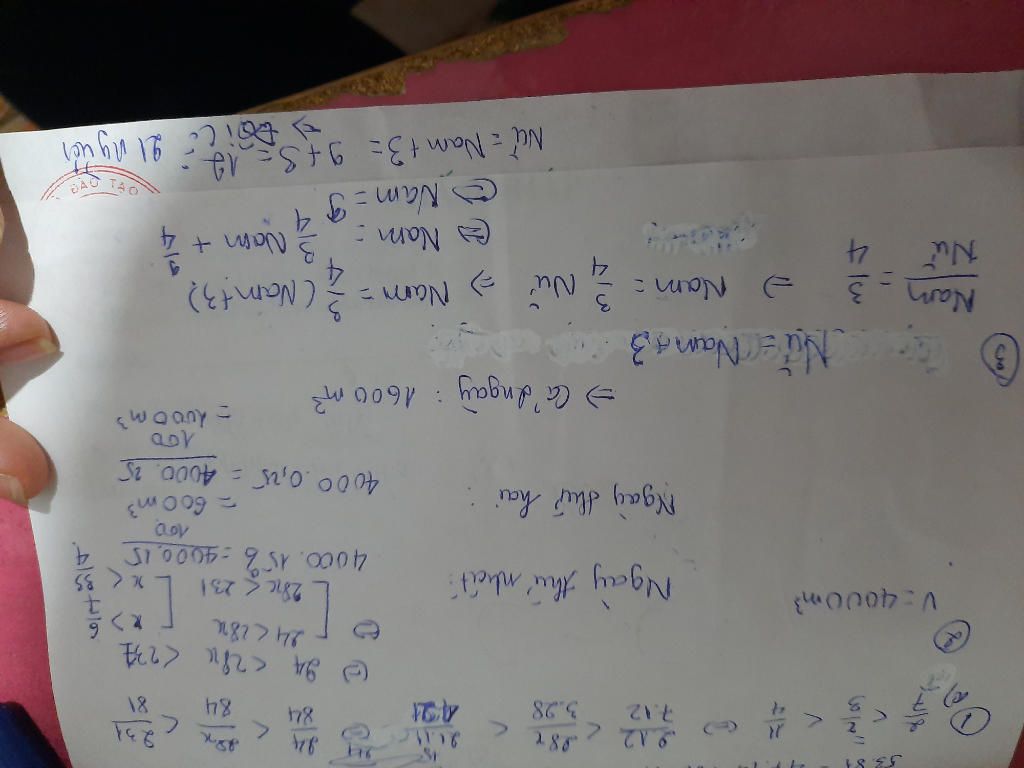 ①
a) 2/7 < x/3 < 11/4 ⇔ 2.12/7.12 < 28x/3.28 < 21.11/4.21 ⇔ 24/84 < 28x/84 < 231/81
⇔ 24 < 28x < 231
⇔ [ 24 < 28x [ x > 6/7
28x < 231 x < 33/4
②
V = 4000m³ Ngày thứ nhất: 4000.15% = 4000.15/100
= 600m³
Ngày thứ hai : 4000.0,25 = 4000.25/100
= 1000m³
⇒ Cả 2 ngày : 1600m³
③ Nữ = Nam+3
Nam/Nữ = 3/4 ⇒ Nam = 3/4 Nữ ⇒ Nam = 3/4 (Nam+3)
⇔ Nam = 3/4 Nam + 9/4
⇔ Nam = 9
ĐÀO TẠO
Nữ = Nam+3 = 9+3 = 12
⇒ Đội có: 21 người